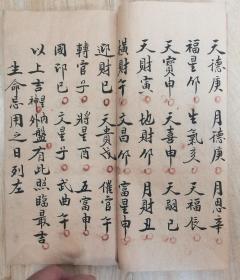 天德庚 月德庚 月恩辛
福星卯 生氣亥 天福辰
天寶申 天喜申 天嗣巳
天財寅 地財卯 月財丑
橫財午 文昌卯 富星申
迎財巳 天貴戌 催官午
轉官子 將星酉 五富申
國印巳 文星子 武曲午
以上吉 內盤有此照臨最吉
生命忌用之日列左